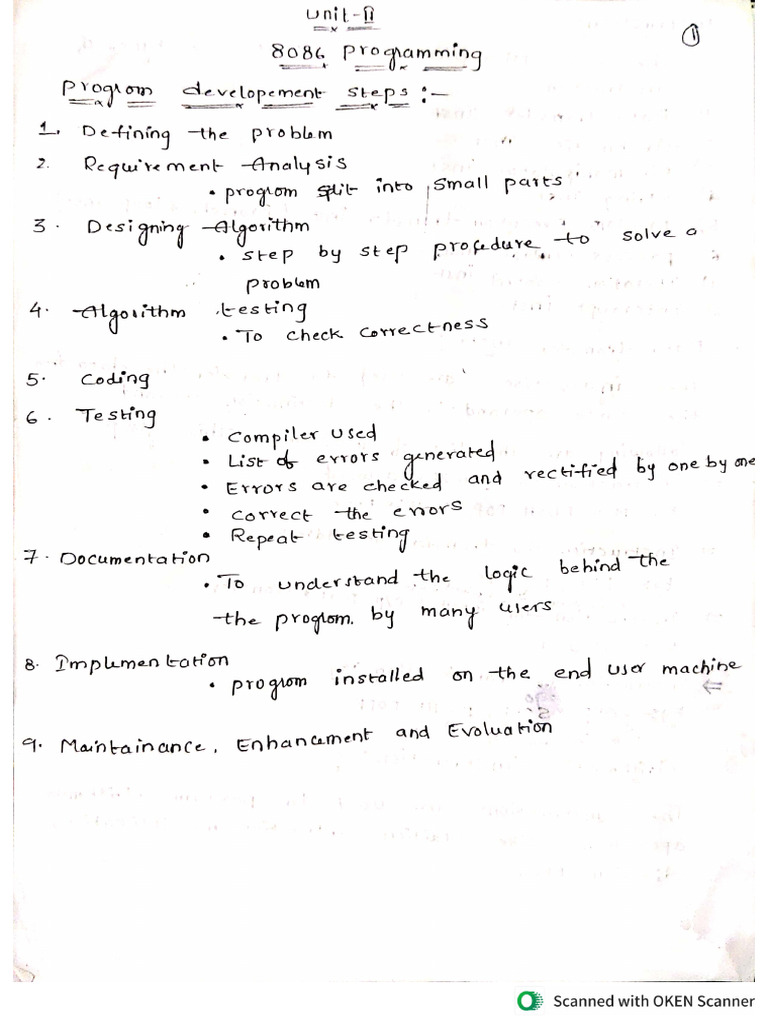 Unit-II
①
8086 Programming
Program developement steps :-
1. Defining the problem
2. Requirement Analysis
• program split into small parts
3. Designing Algorithm
• step by step procedure to solve a
problem
4. Algorithm testing
• To check correctness
5. Coding
6. Testing
• Compiler used
• List of errors generated
• Errors are checked and rectified by one by one
• correct the errors
• Repeat testing
7. Documentation
• To understand the logic behind the
the program. by many users
8. Implementation
• program installed on the end user machine
9. Maintainance, Enhancement and Evoluation
Scanned with OKEN Scanner